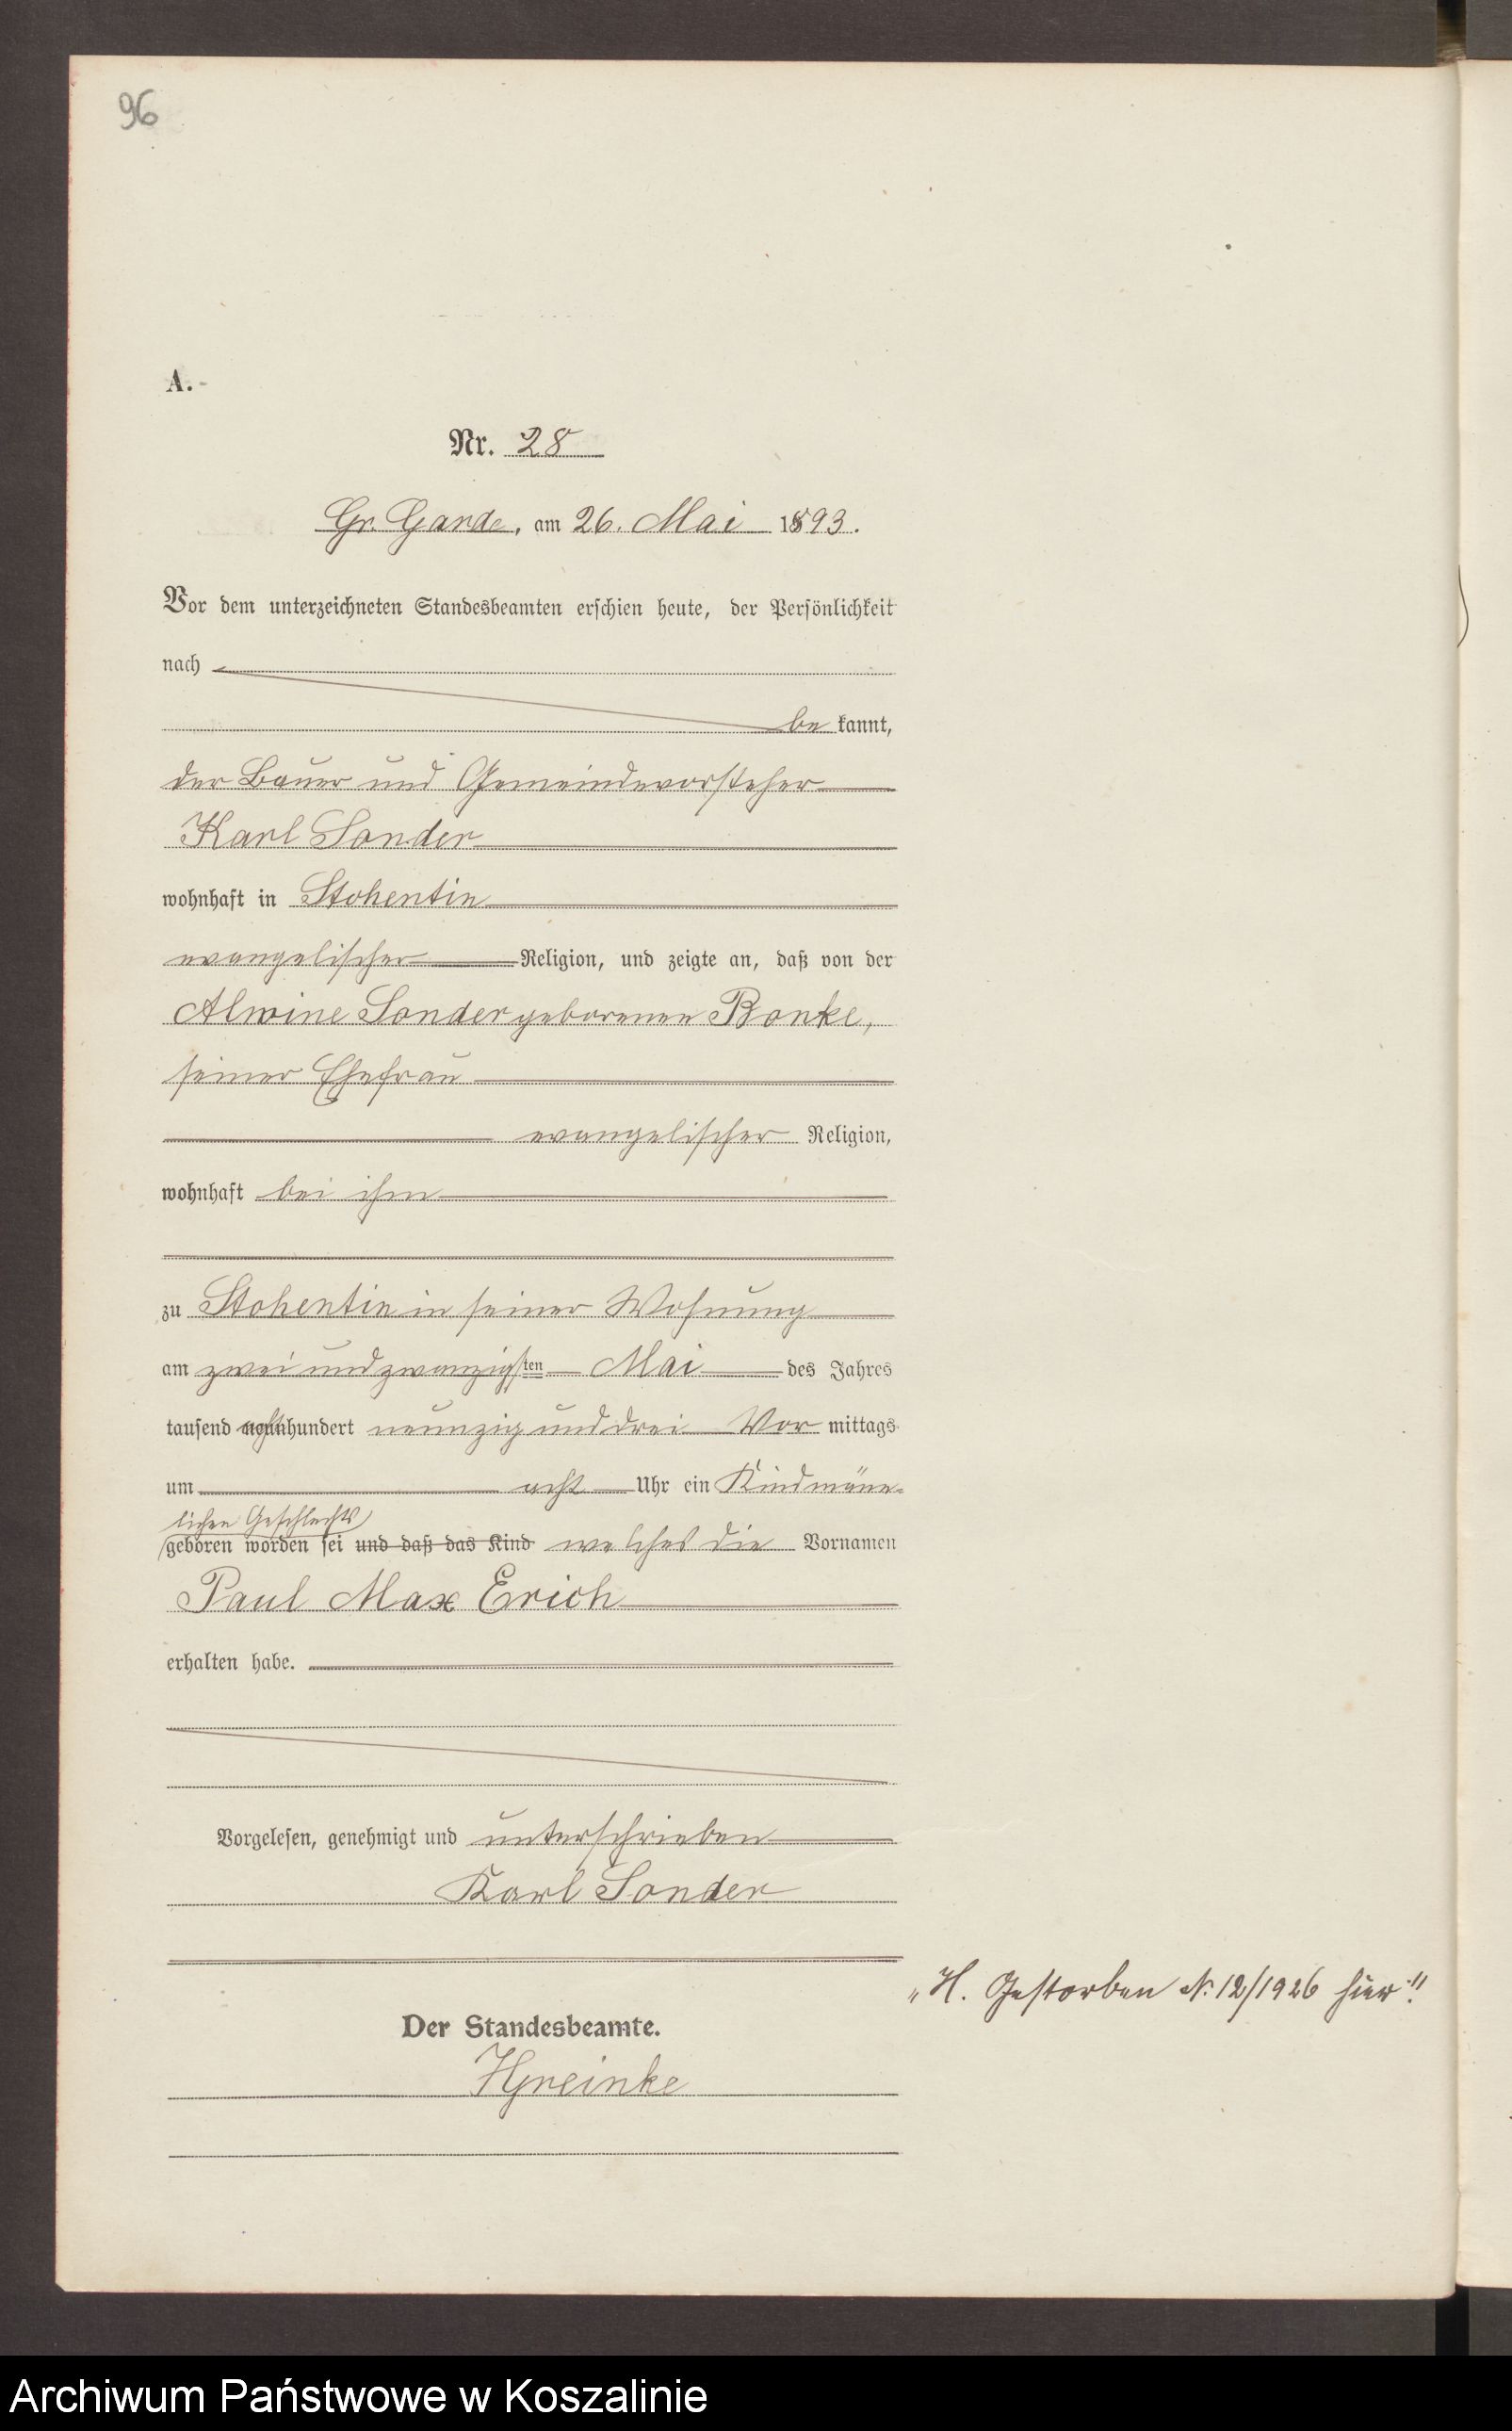 96
A.
Nr. 28
Gr. Garde, am 26. Mai 1893.
Vor dem unterzeichneten Standesbeamten erschien heute, der Persönlichkeit
nach
be kannt,
der Bauer und Gemeindevorsteher
Karl Sonder
wohnhaft in Stohentin
evangelischer Religion, und zeigte an, daß von der
Alwine Sonder geborenen Bonke,
seiner Ehefrau
evangelischer Religion,
wohnhaft bei ihm
zu Stohentin in seiner Wohnung
am zwei und zwanzigsten Mai des Jahres
tausend achthundert neunzig und drei Vor mittags
um acht Uhr ein Kind männ-
lichen Geschlechts
geboren worden sei und daß das Kind welches die Vornamen
Paul Max Erich
erhalten habe.
Vorgelesen, genehmigt und unterschrieben
Karl Sonder
„H. Gestorben N. 12/1926 hier“!
Der Standesbeamte.
HGreinke
Archiwum Państwowe w Koszalinie